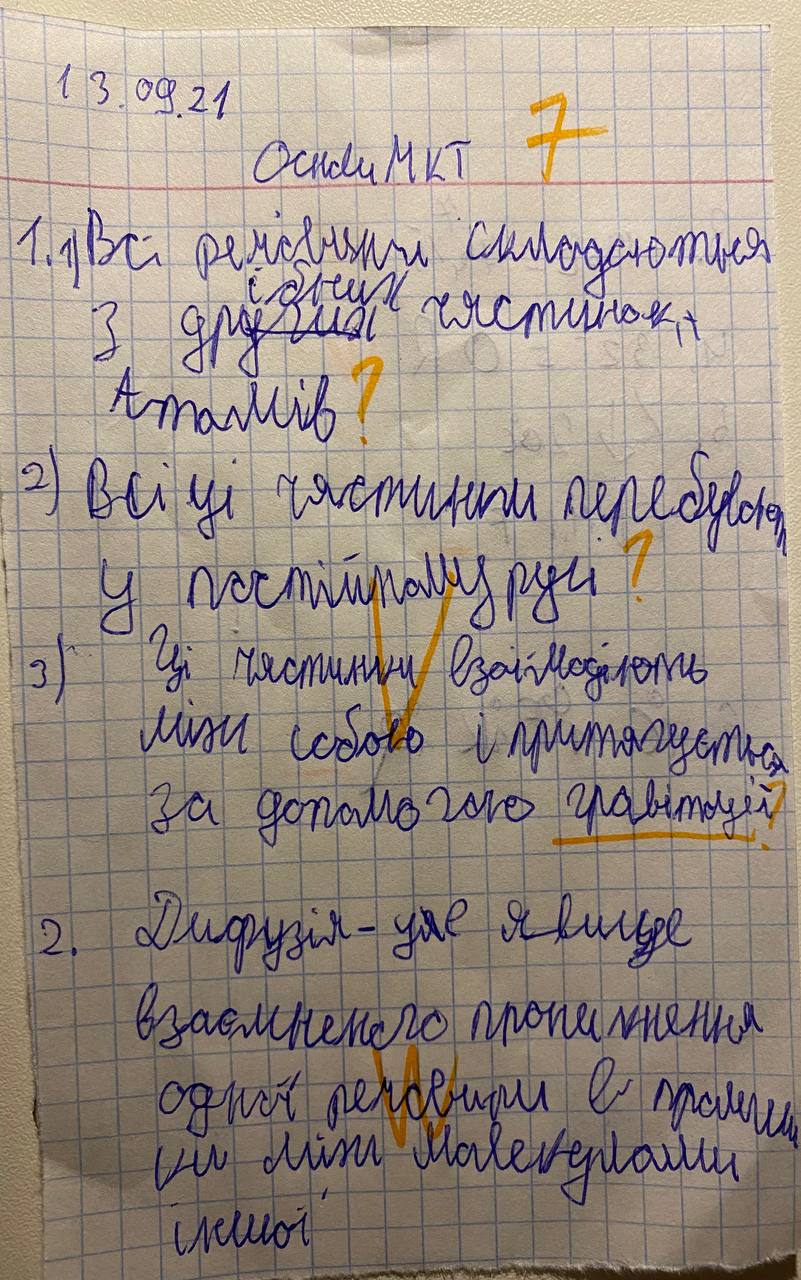 13.09.21
7
Основи МКТ
1. 1) Всі речовини складаються
і бних
з др частинок,
Атомів ?
2) Всі ці частинки перебувають
у постійному русі ?
3) Ці частинки взаїмодіють
між собою і притягуеться
за допомогою гравітації ?
2. Дифузія - це явище
взаємненого проникнення
одної речовини в проміжки
ки між молекулами
іншої